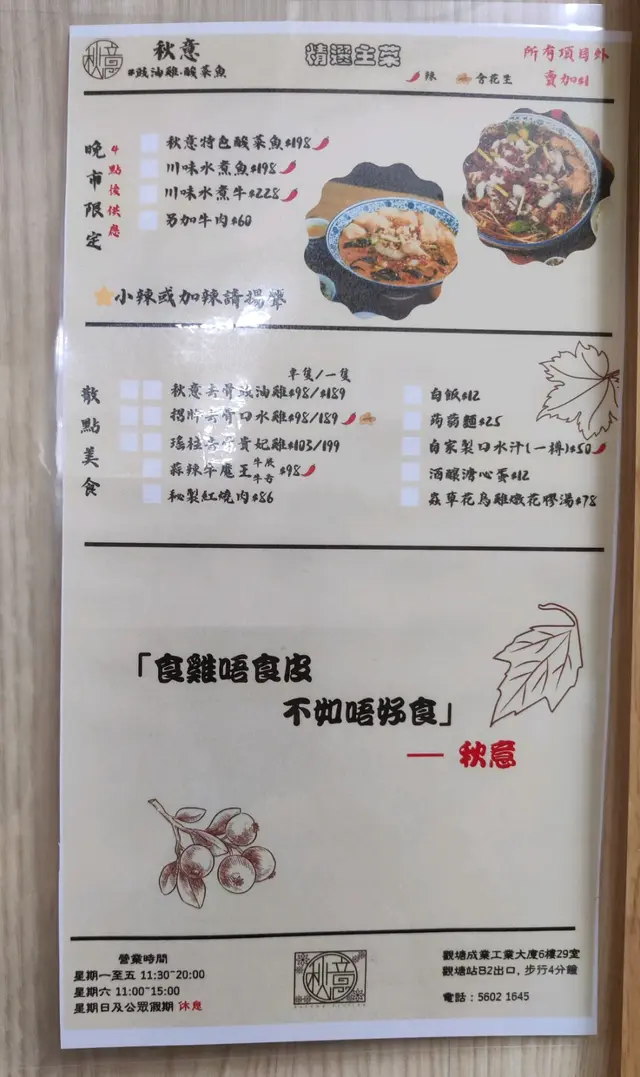 秋意
秋意
#豉油雞·酸菜魚
精選主菜
辣
含花生
所有項目外
賣加$1
晚市限定
4點後供應
秋意特色酸菜魚$198
川味水煮魚$198
川味水煮牛$228
另加牛肉$60
小辣或加辣請揚聲
散點美食
半隻/一隻
秋意去骨豉油雞$98/$189
招牌去骨口水雞$98/189
瑤柱去骨貴妃雞$103/199
蒜辣牛魔王 牛展 $98
秘製紅燒肉$86
白飯$12
蒟蒻麵$25
自家製口水汁(一樽)$50
酒釀溏心蛋$12
蟲草花烏雞燉花膠湯$78
「食雞唔食皮
不如唔好食」
— 秋意
營業時間
星期一至五 11:30~20:00
星期六 11:00~15:00
星期日及公眾假期 休息
秋意
觀塘成業工業大廈6樓29室
觀塘站B2出口, 步行4分鐘
電話：5602 1645